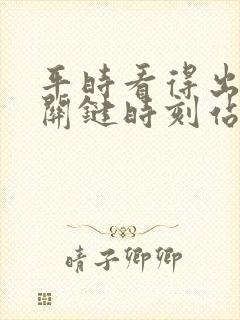 平時看得出
關鍵時刻
晴子卿卿